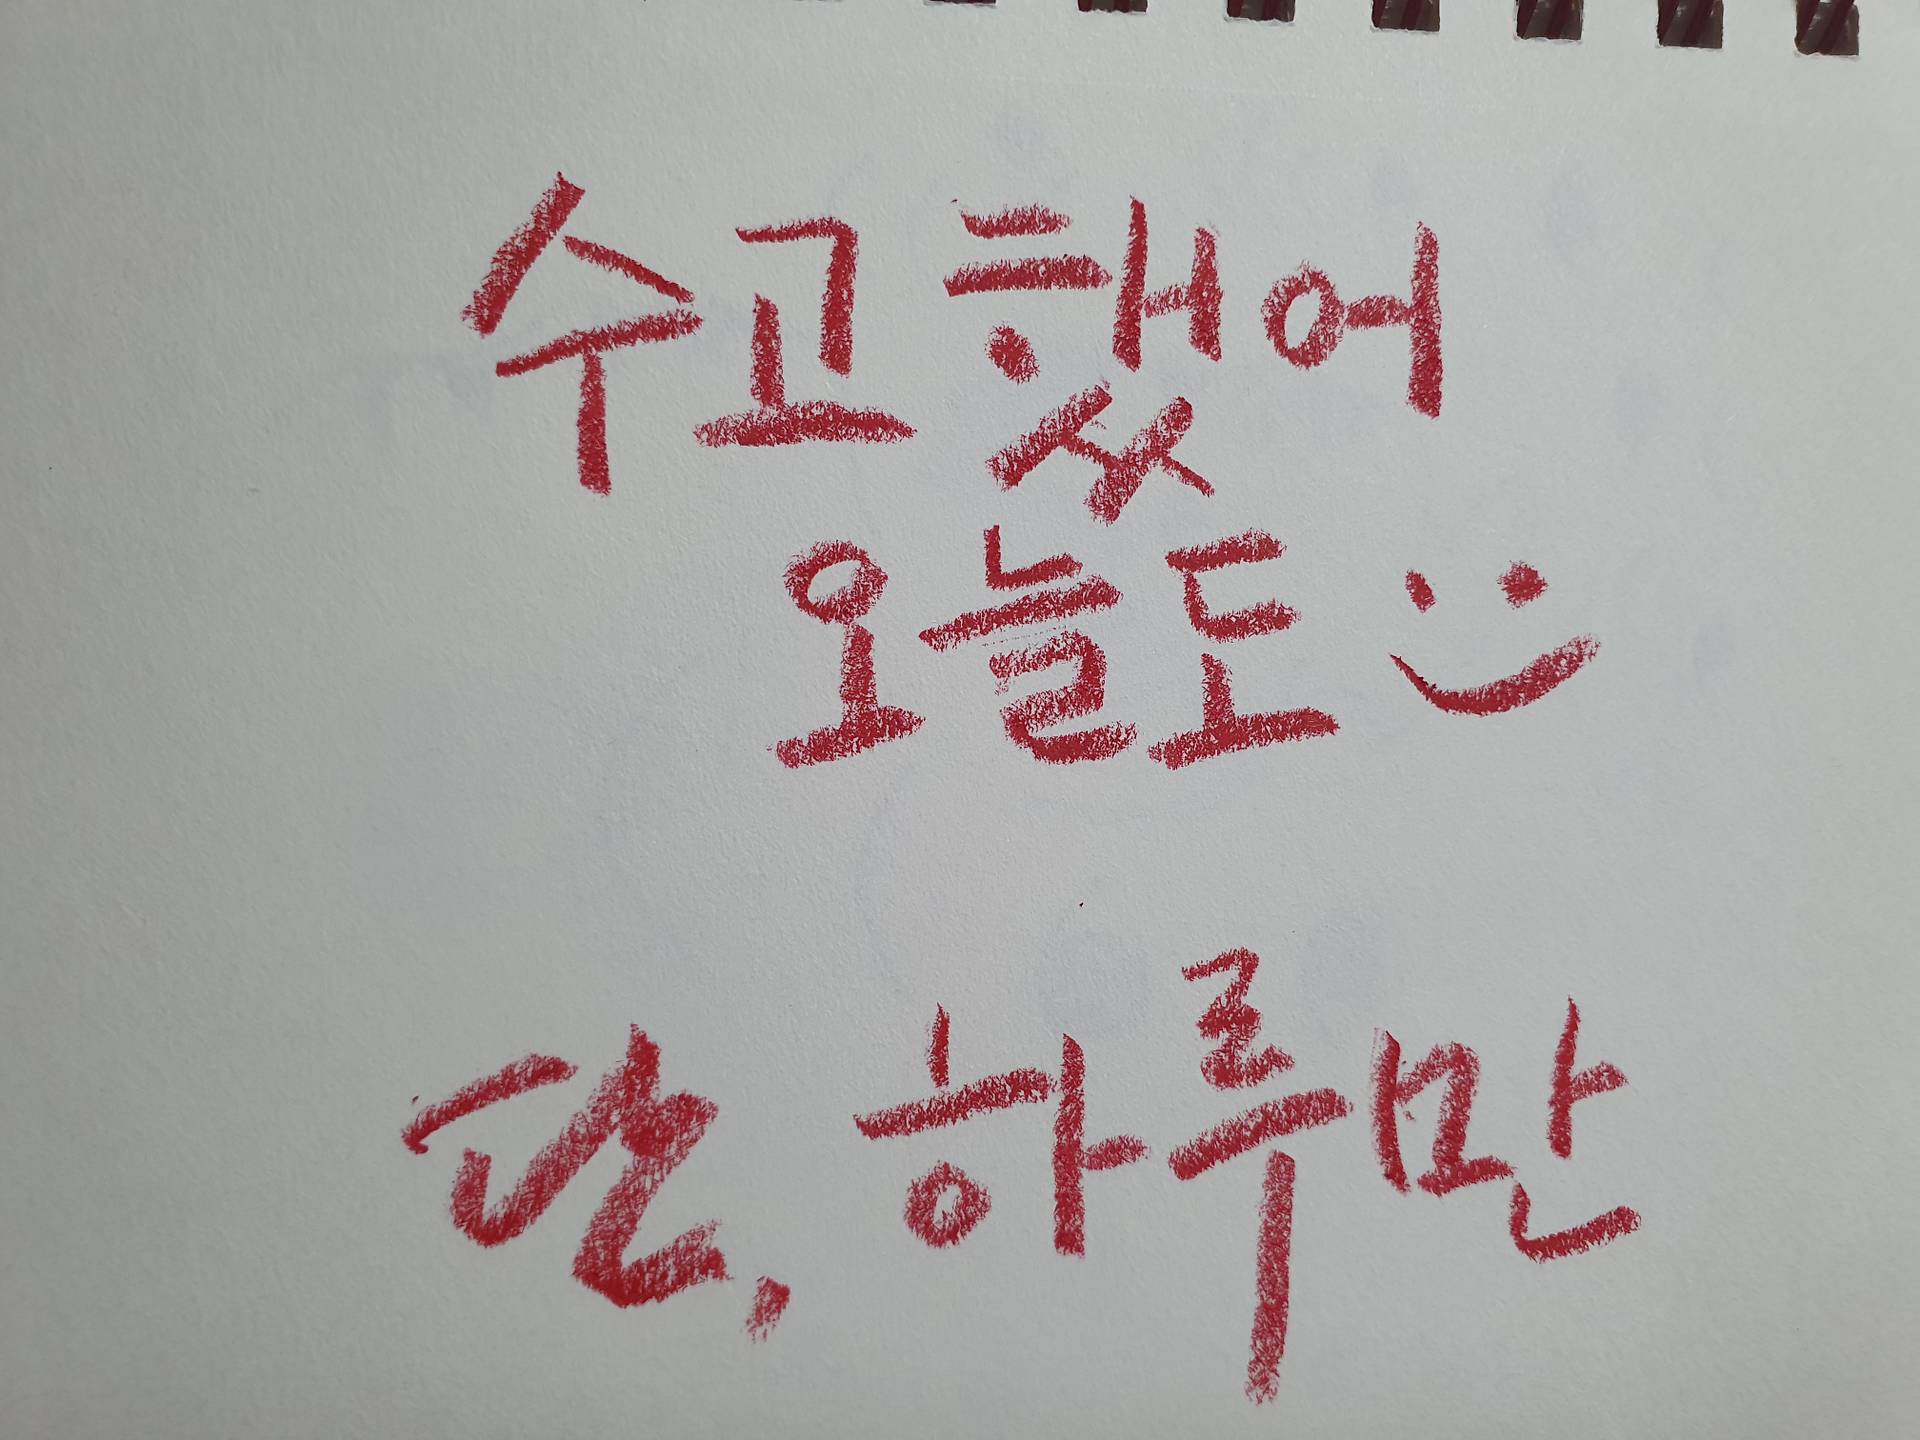 수고했어
오늘도 :)
단, 하루만